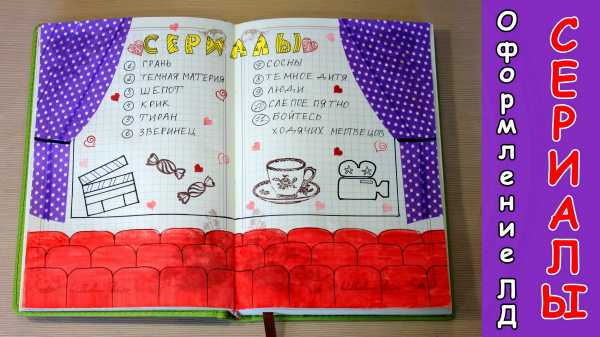 СЕРИАЛЫ
1 ГРАНЬ
2 ТЕМНАЯ МАТЕРИЯ
3 ШЕПОТ
4 КРИК
5 ТИРАН
6 ЗВЕРИНЕЦ
7 СОСНЫ
8 ТЕМНОЕ ДИТЯ
9 ЛЮДИ
10 СЛЕПОЕ ПЯТНО
11 БОЙТЕСЬ
ХОДЯЧИХ МЕРТВЕЦОВ
Оформление ЛД
СЕРИАЛЫ